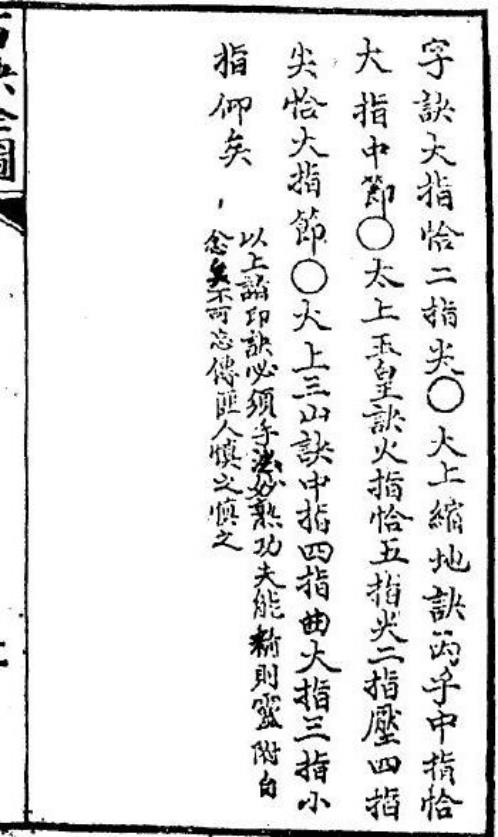 字訣大指恰二指尖〇大上縮地訣兩手中指恰
大指中節〇太上玉皇訣火指恰五指尖二指壓四指
尖恰大指節〇大上三山訣中指四指曲大指三指小
指仰矣
以上諸印訣必須手法妙熟功夫能精則靈附自
念矣不可忘傳匪人慎之慎之
訣全圖